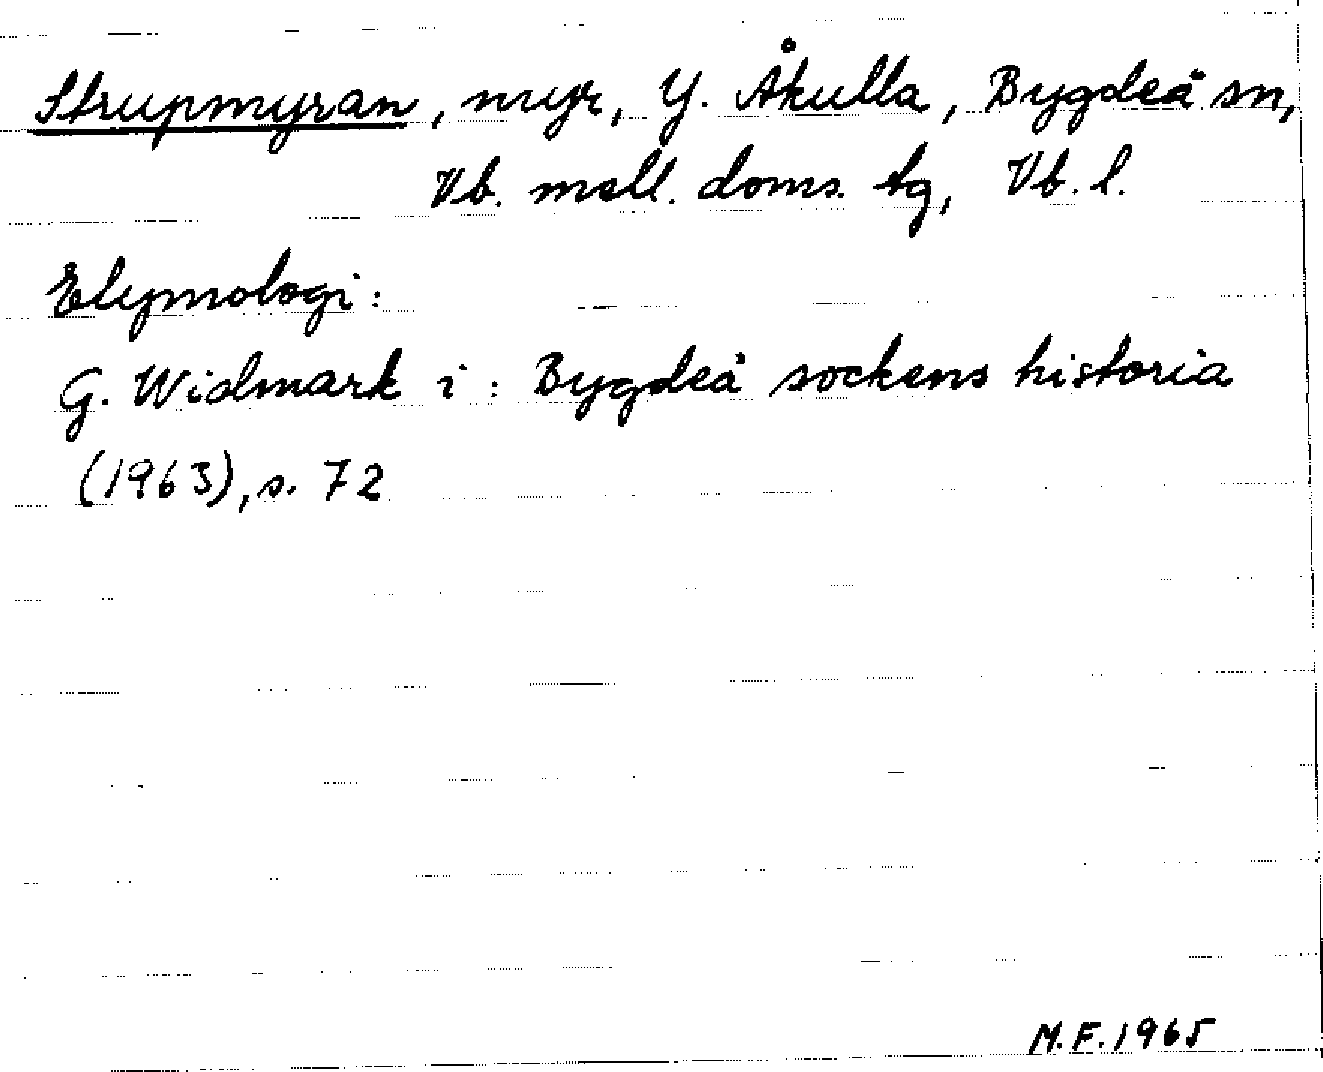 Strupmyran, myr, Y. Åkulla, Bygdeå sn,
Vb. mell. doms. tg, Vb. l.
Etymologi:
G. Widmark i: Bygdeå sockens historia
(1963), s. 72
M.F. 1965